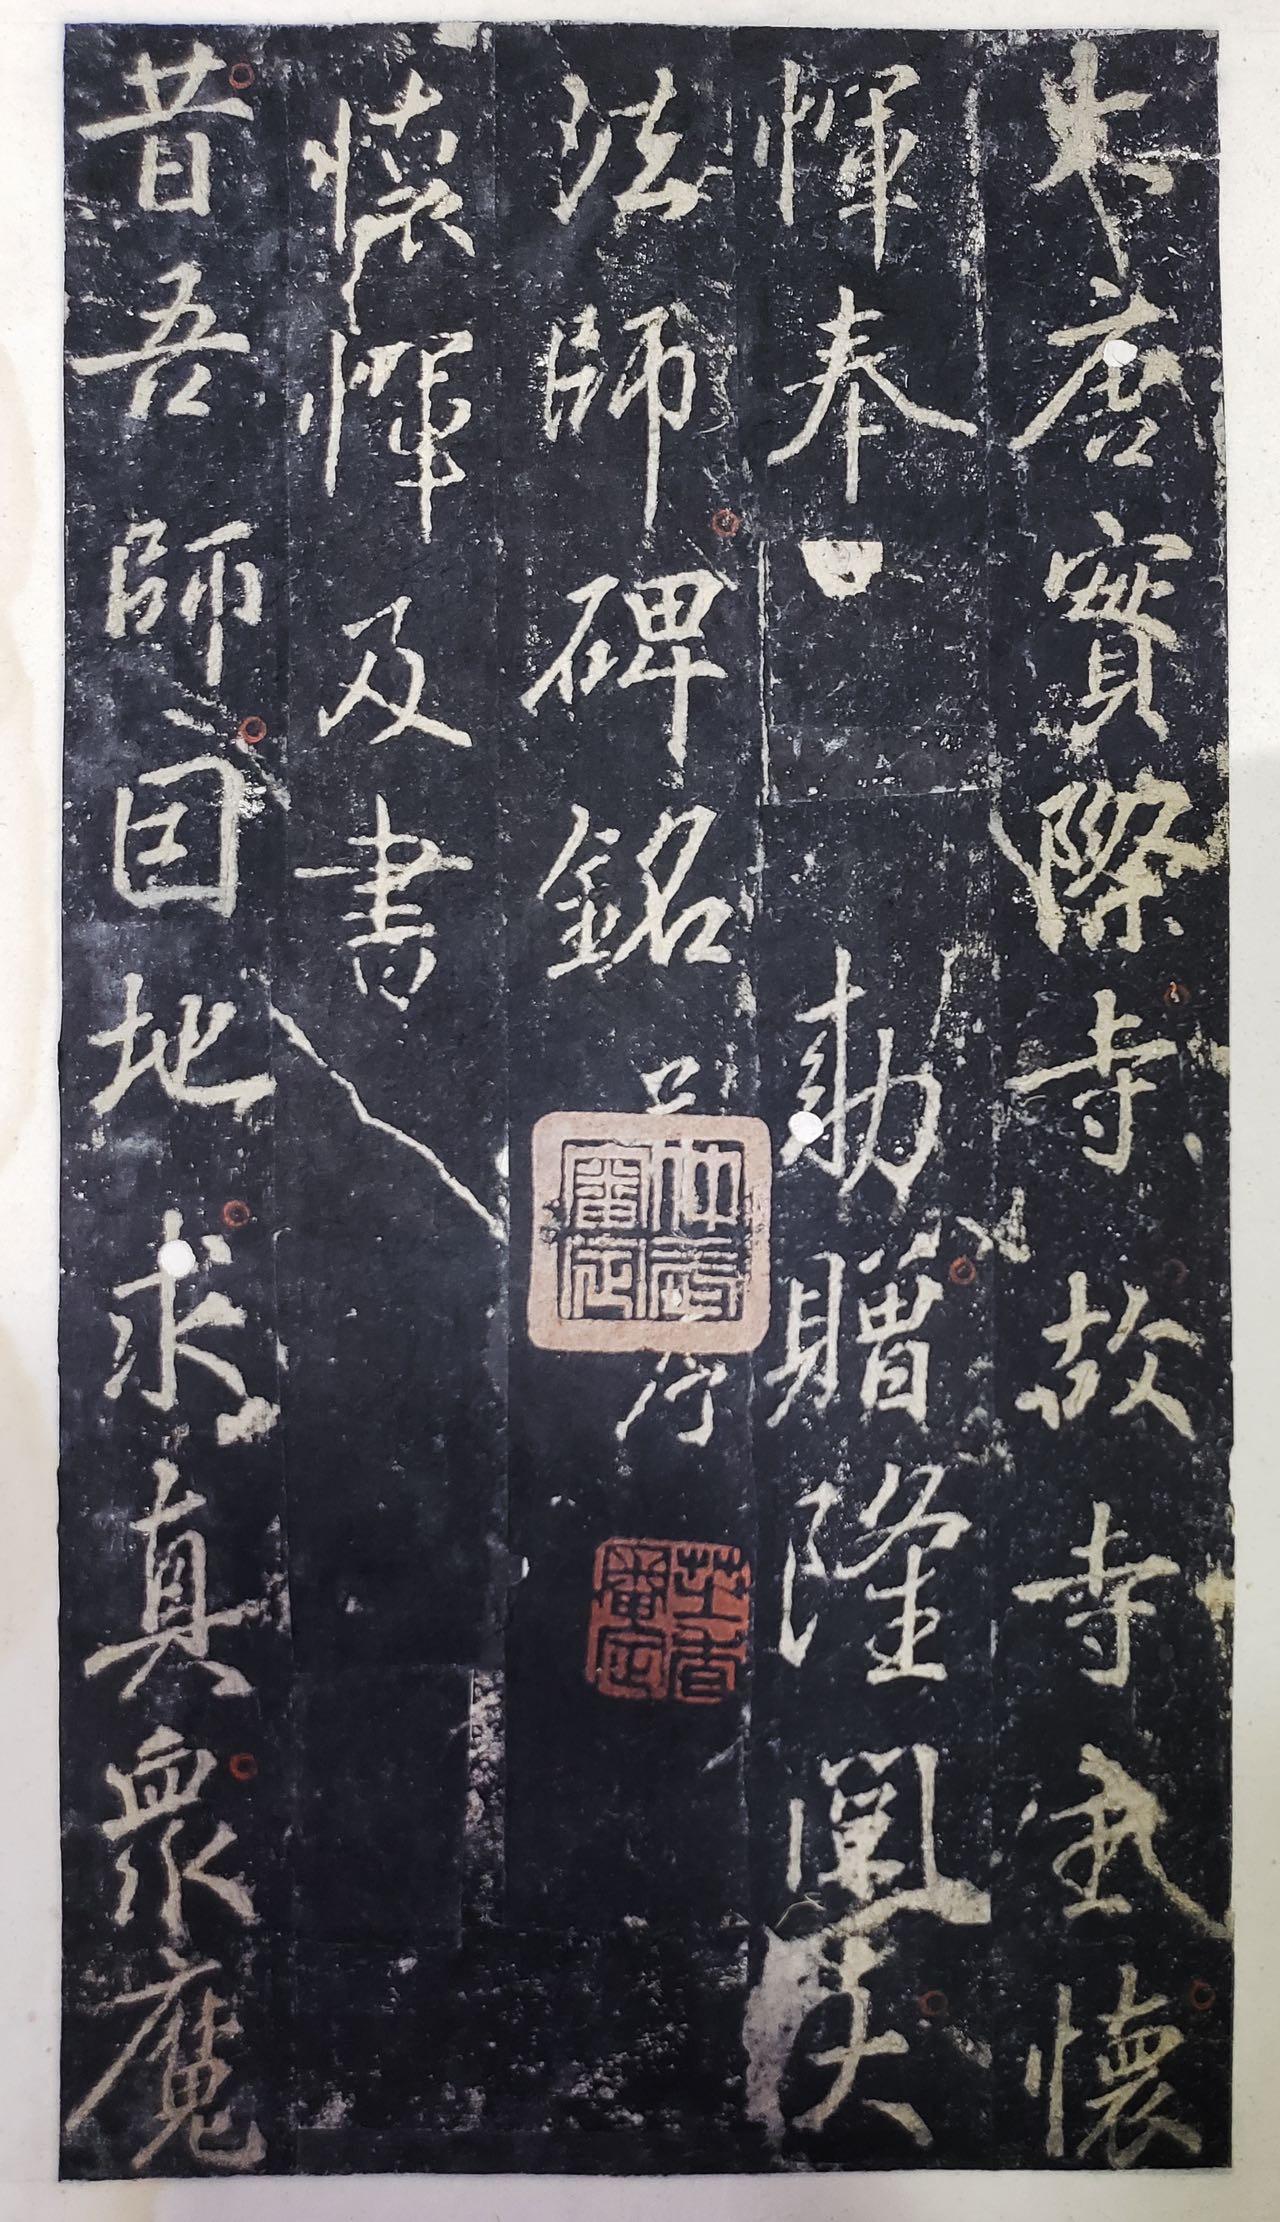 大唐實際寺故寺主懷
惲奉 勅贈隆闡大
法師碑銘并序
懷惲及書
昔吾師因地求真眾魔
審定
審定